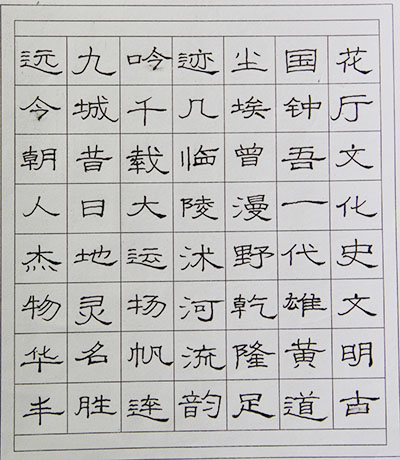 花厅文化史文明古
国钟吾一代雄黄道
尘埃曾漫野乾隆足
迹几临陵沭河流韵
吟千载大运扬帆连
九城昔日地灵名胜
远今朝人杰物华丰